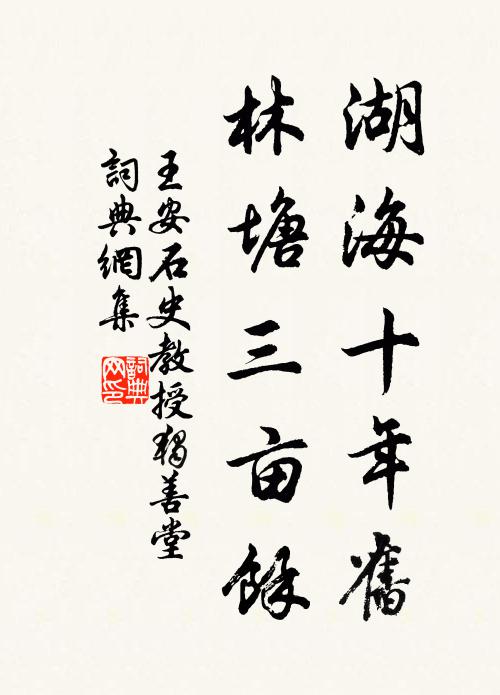 湖海十年舊
林塘三亩餘
王安石史教授獨善堂
詞典網集
詞典網印